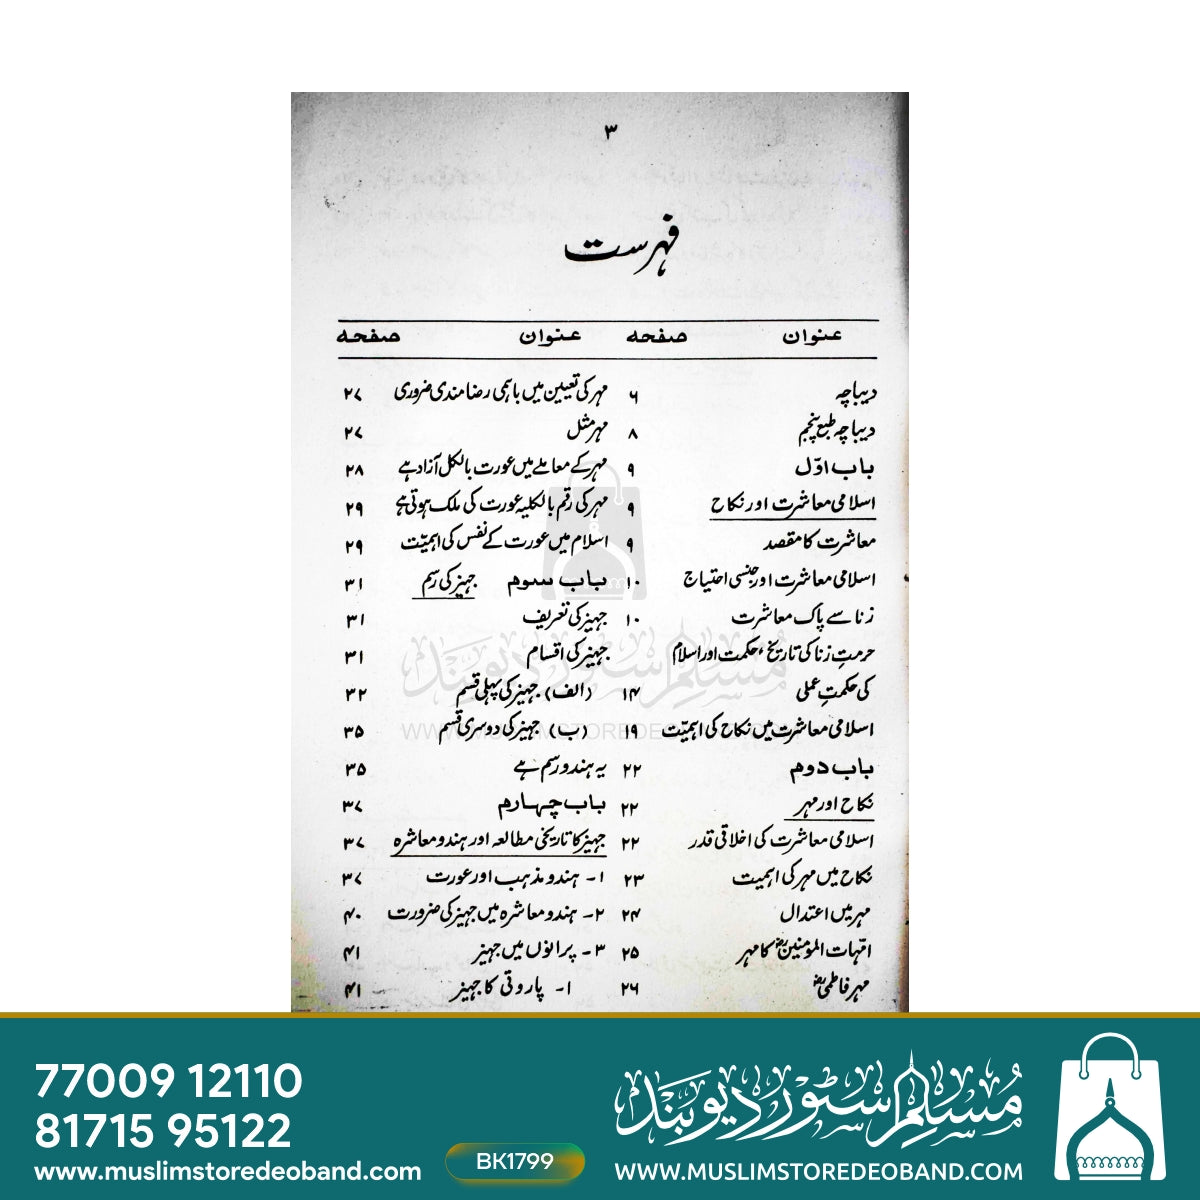 ۳
فہرست
عنوان صفحه
دیباچہ ۶
دیباچہ طبع پنجم ۸
باب اوّل ۹
اسلامی معاشرت اور نکاح ۹
معاشرت کا مقصد ۹
اسلامی معاشرت اور جنسی احتیاج ۱۰
زنا سے پاک معاشرت ۱۰
حرمتِ زنا کی تاریخ، حکمت اور اسلام
کی حکمتِ عملی ۱۴
اسلامی معاشرت میں نکاح کی اہمیّت ۱۹
باب دوم ۲۲
نکاح اور مہر ۲۲
اسلامی معاشرت کی اخلاقی قدر ۲۲
نکاح میں مہر کی اہمیت ۲۳
مہر میں اعتدال ۲۴
امّہات المومنینؓ کا مہر ۲۵
مہر فاطمیؓ ۲۶
عنوان صفحه
مہر کی تعیین میں باہمی رضامندی ضروری ۲۷
مہر مثل ۲۷
مہر کے معاملے میں عورت بالکل آزاد ہے ۲۸
مہر کی رقم بالکلیہ عورت کی ملک ہوتی ہے ۲۹
اسلام میں عورت کے نفس کی اہمیّت ۲۹
باب سوم جہیز کی رسم ۳۱
جہیز کی تعریف ۳۱
جہیز کی اقسام ۳۱
(الف) جہیز کی پہلی قسم ۳۲
(ب) جہیز کی دوسری قسم ۳۵
یہ ہندو رسم ہے ۳۵
باب چہارم ۳۷
جہیز کا تاریخی مطالعہ اور ہندو معاشرہ ۳۷
۱- ہندو مذہب اور عورت ۳۷
۲- ہندو معاشرہ میں جہیز کی ضرورت ۴۰
۳- پرانوں میں جہیز ۴۱
۱- پاروتی کا جہیز ۴۱
مسلم سٹور دیوبند
WWW.MUSLIMSTOREDEOBAND.COM
77009 12110
81715 95122
www.muslimstoredeoband.com
BK1799
مسلم سٹور دیوبند
WWW.MUSLIMSTOREDEOBAND.COM